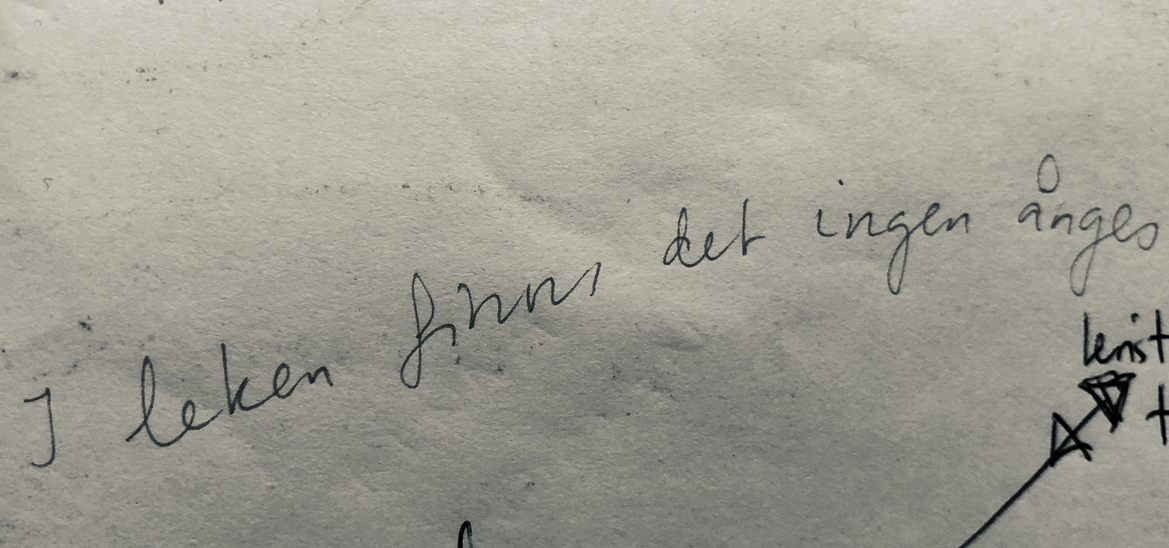 I leken finns det ingen ånges